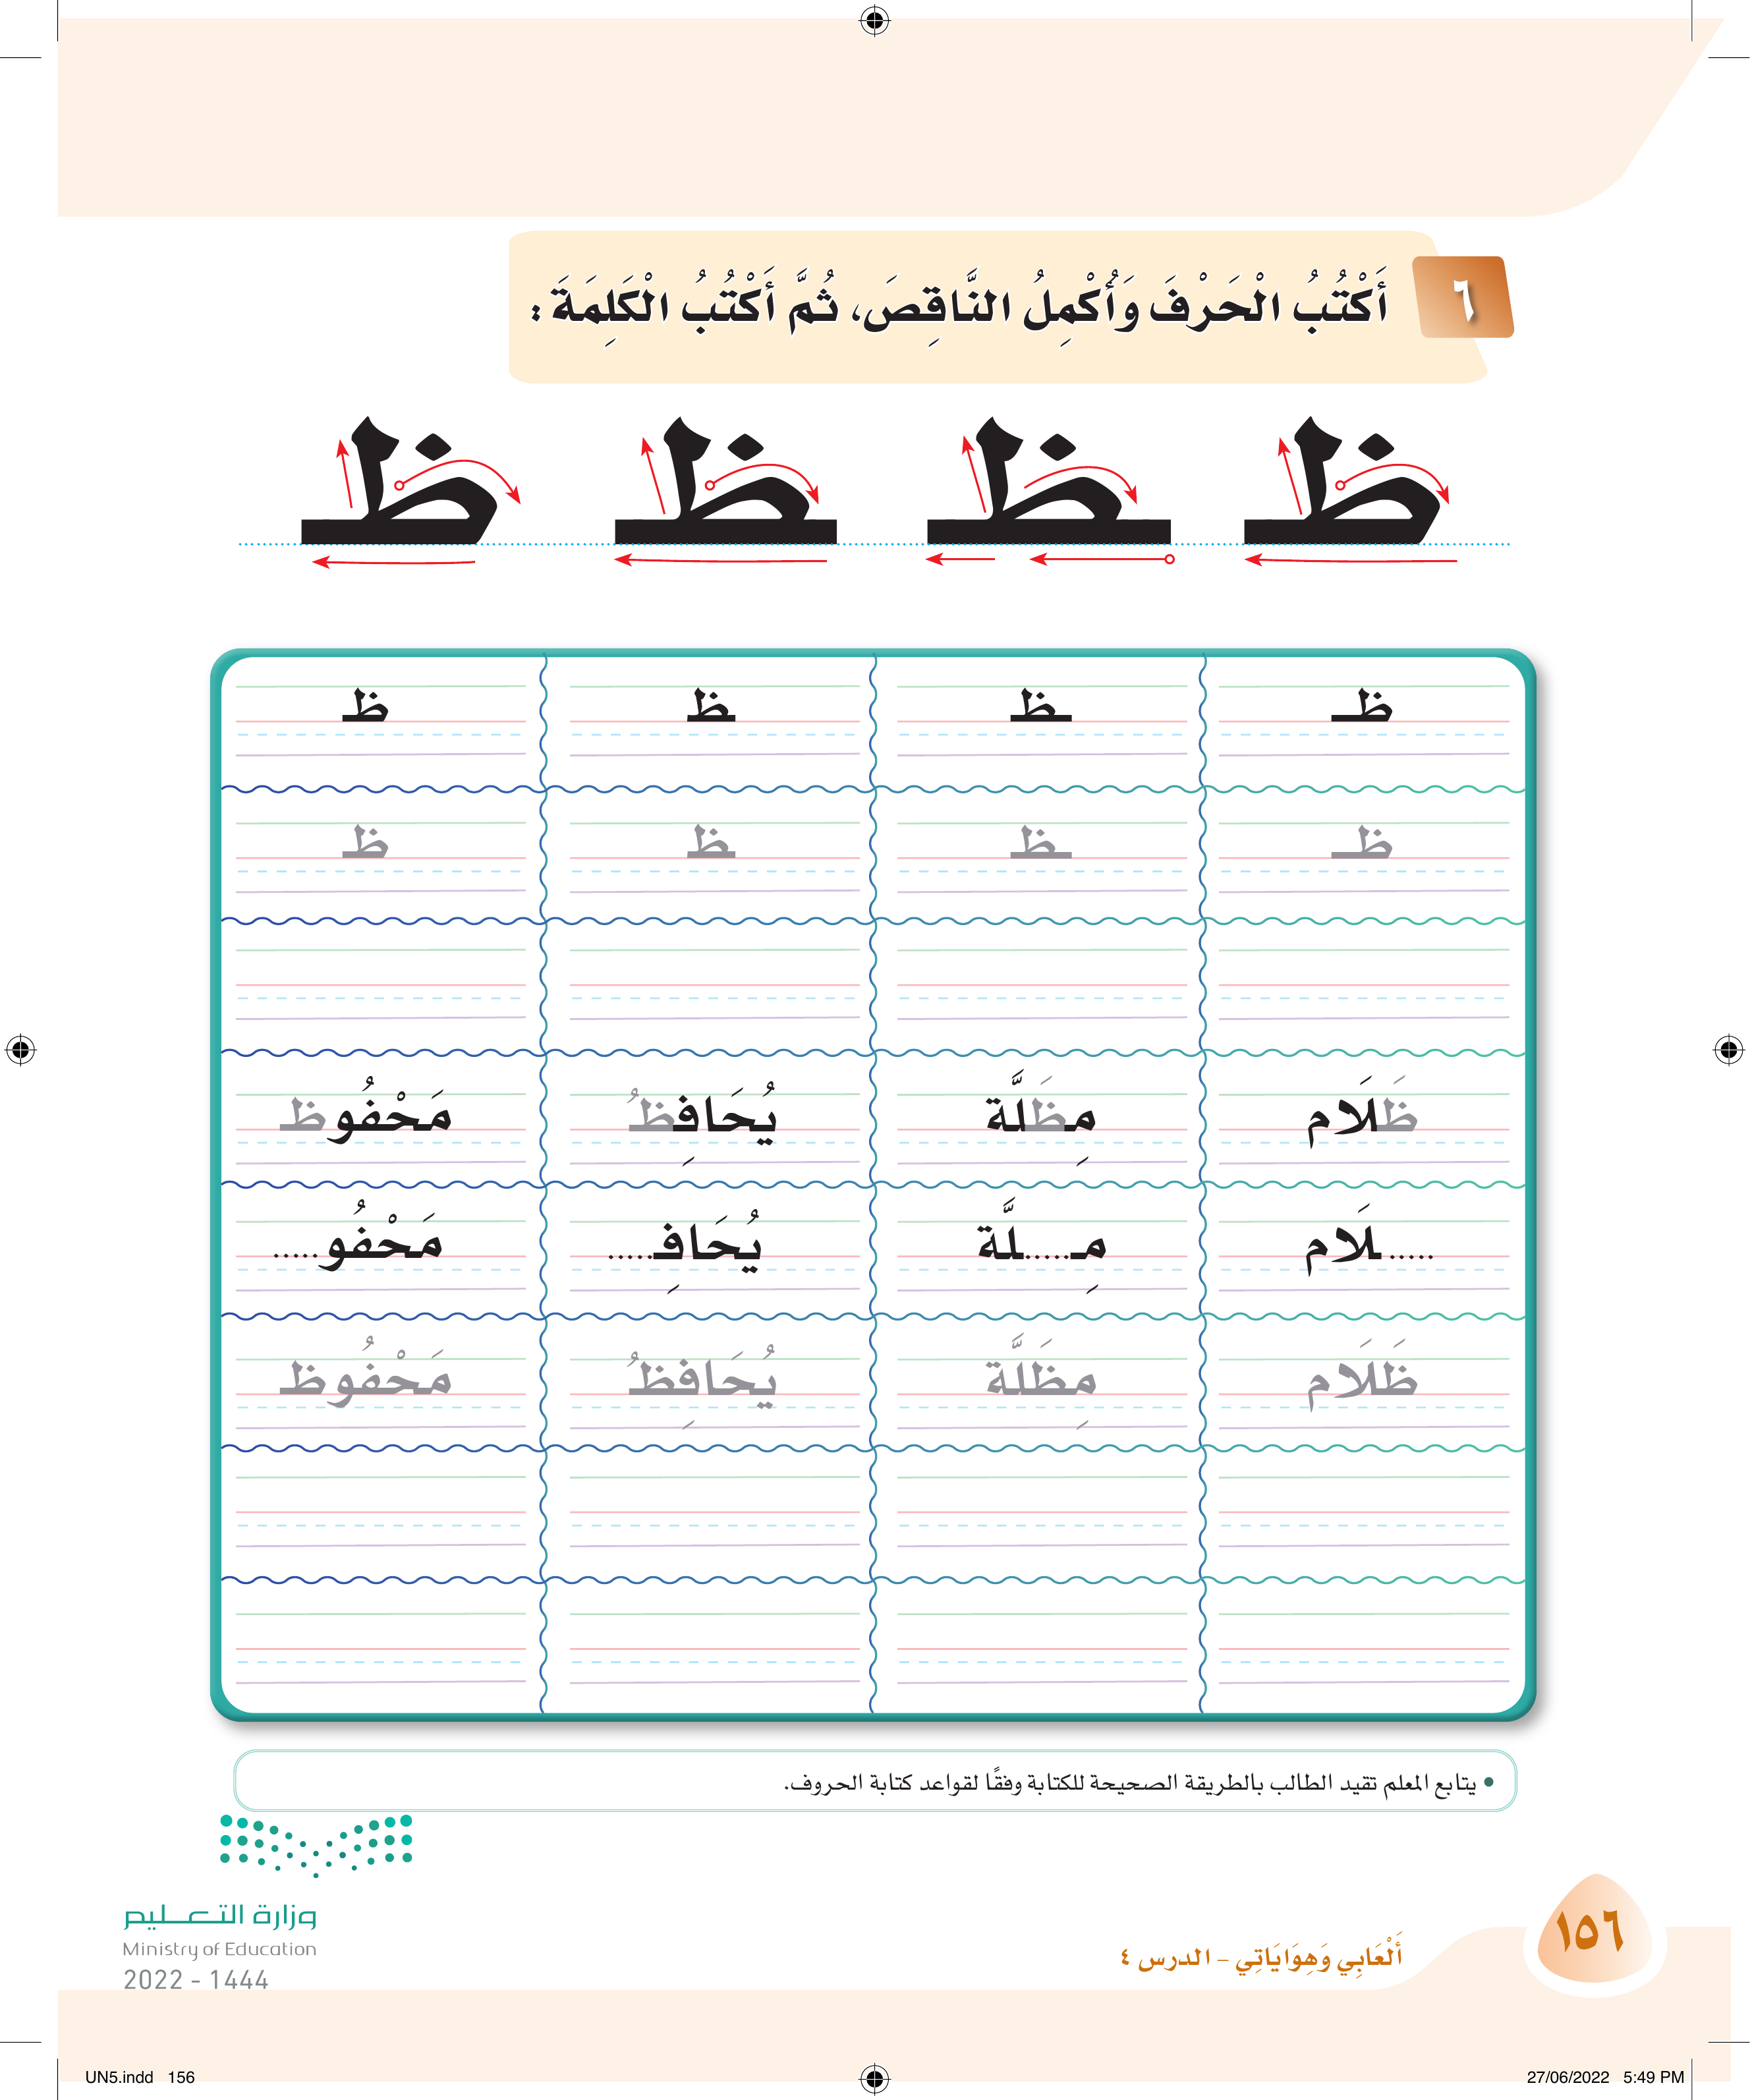 ٦
أَكْتُبُ الْحَرْفَ وَأُكْمِلُ النَّاقِصَ، ثُمَّ أَكْتُبُ الْكَلِمَةَ :
ظـ ـظـ ـظ ظ
ظـ ـظـ ـظ ظ
ظـ ـظـ ـظ ظ
ظَلَام مِظَلَّة يُحَافِظُ مَحْفُوظ
.....لَام مِـ.....لَّة يُحَافِـ..... مَحْفُو.....
ظَلَام مِظَلَّة يُحَافِظُ مَحْفُوظ
• يتابع المعلم تقيد الطالب بالطريقة الصحيحة للكتابة وفقًا لقواعد كتابة الحروف.
وزارة التعـــليم
Ministry of Education
2022 - 1444
١٥٦
أَلْعَابِي وَهِوَايَاتِي – الدرس ٤
UN5.indd 156
27/06/2022 5:49 PM